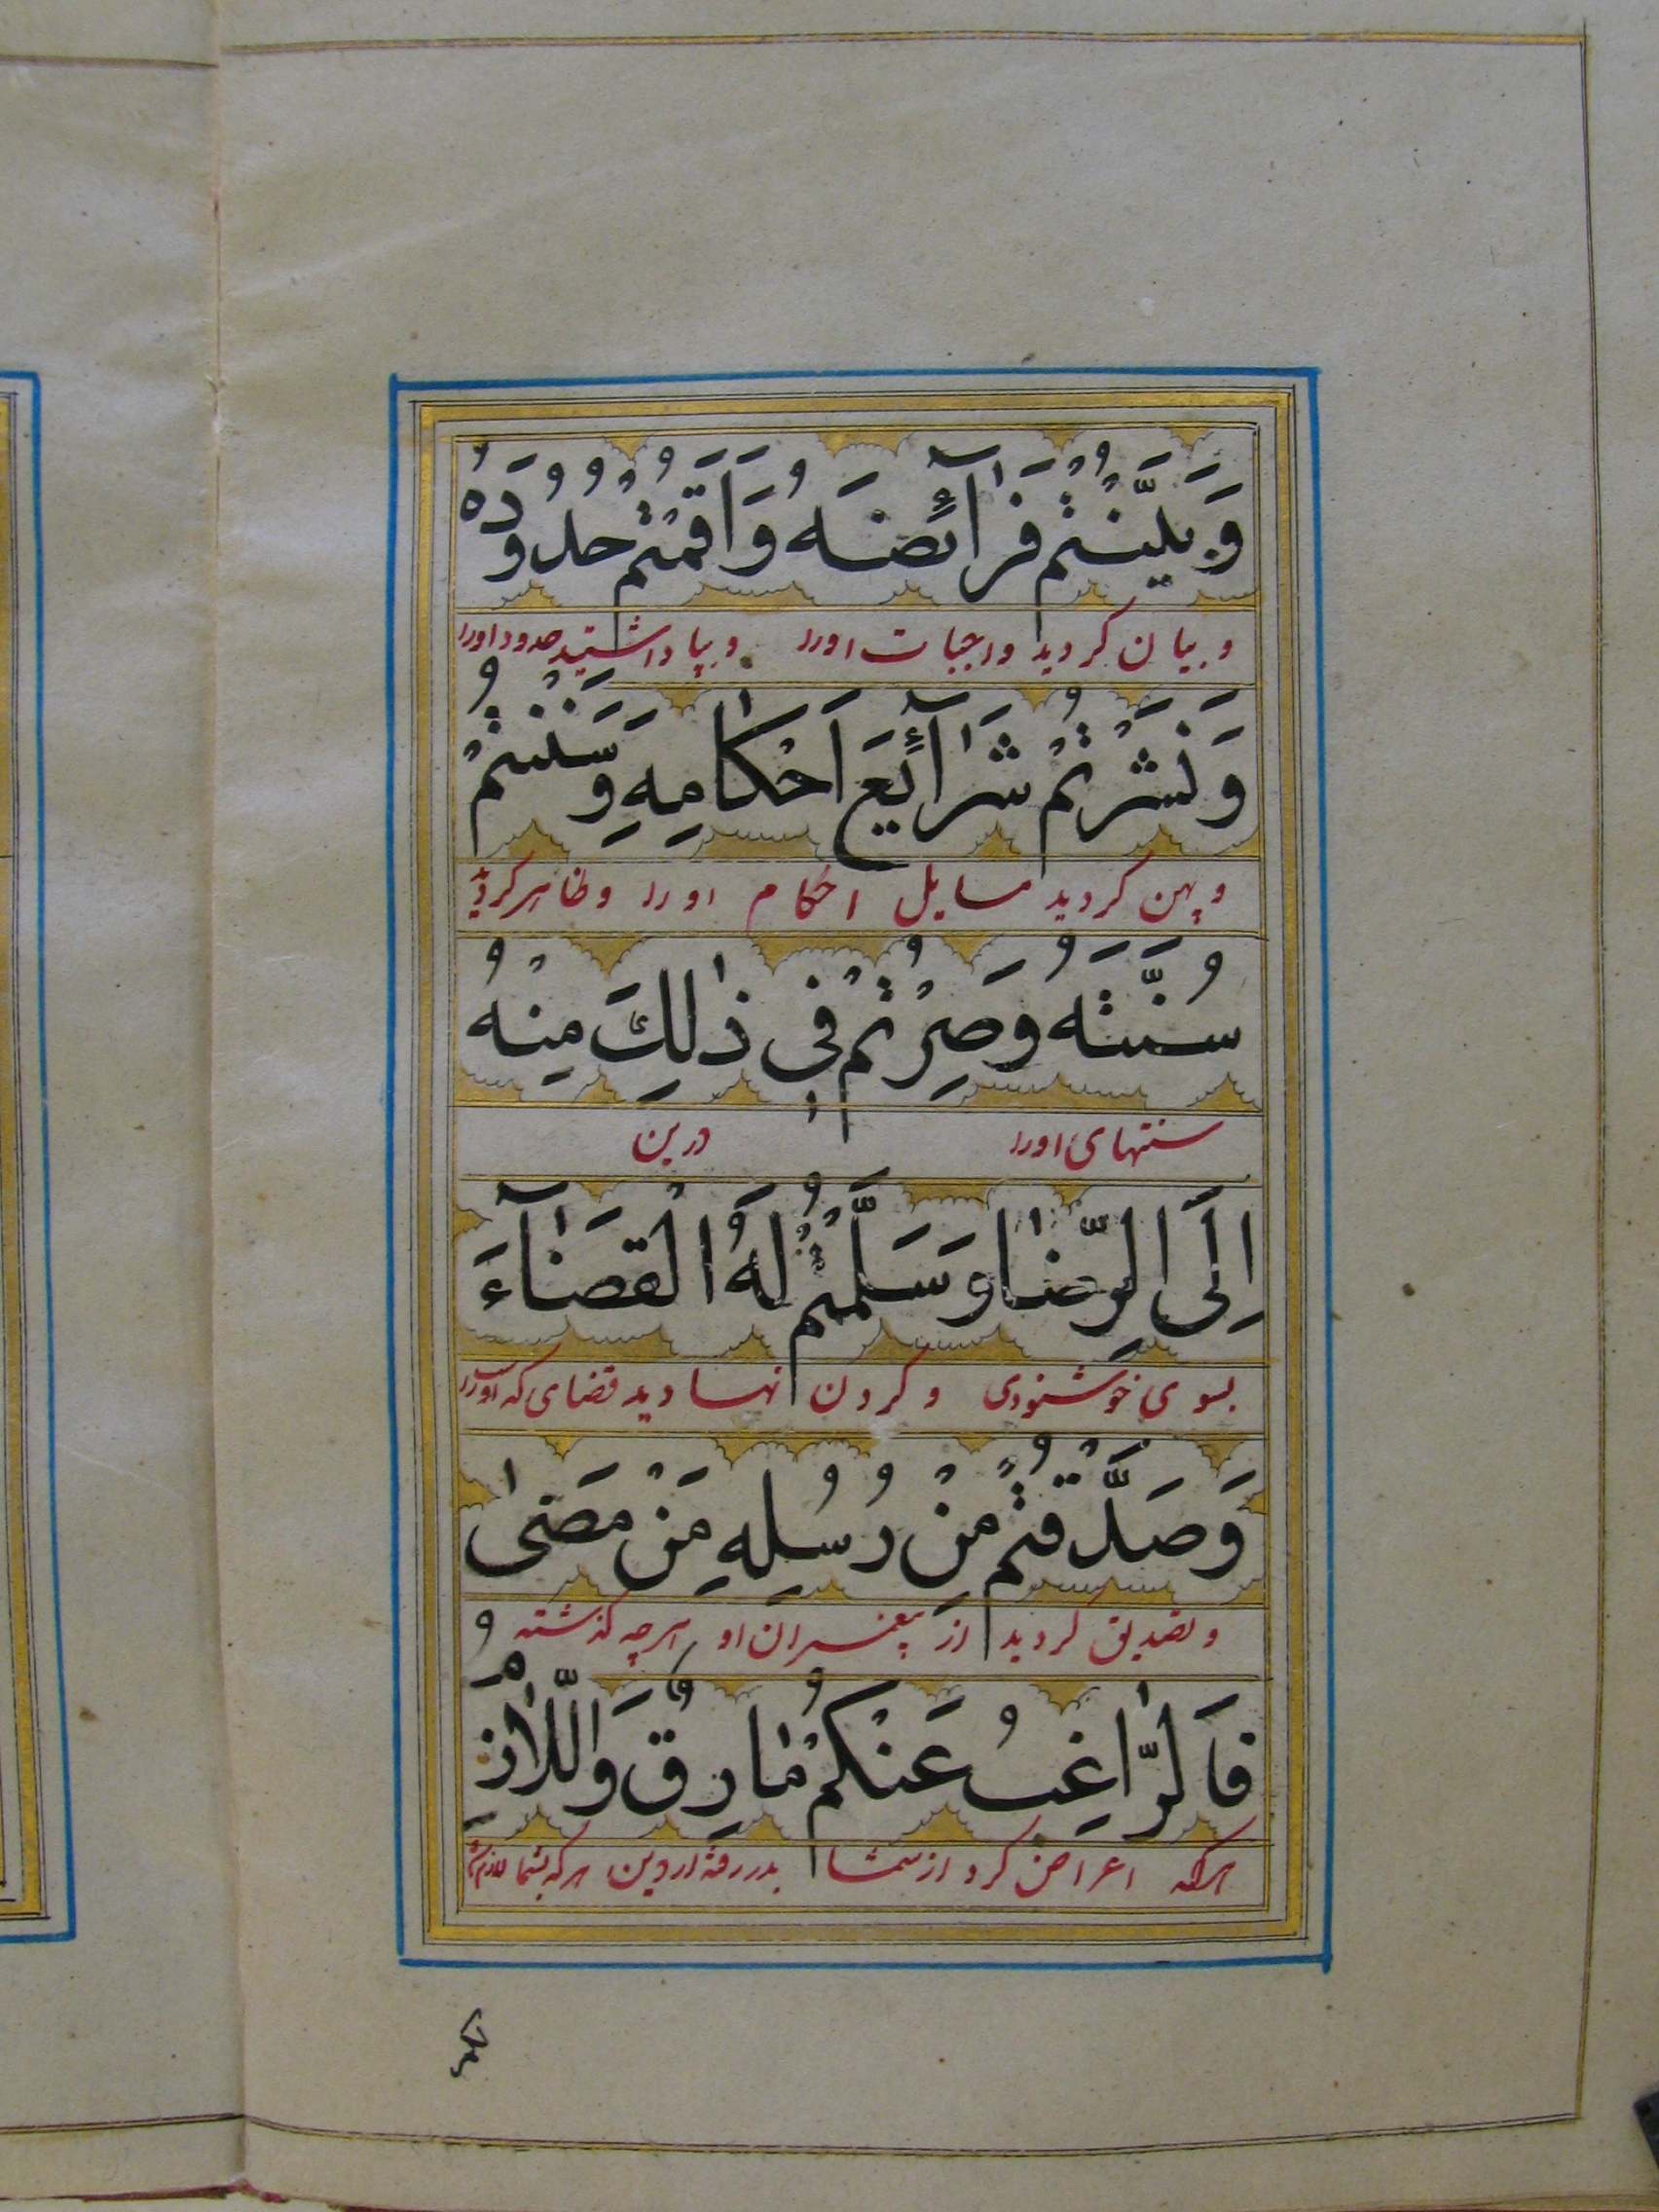 وَبَيَّنْتُمْ فَرَآئِضَهُ وَاَقَمْتُمْ حُدُودَهُ
و بیان کردید واجبات اورا و بپا داشتید حدود اورا
وَنَشَرْتُمْ شَرَآئِعَ اَحْكَامِهِ وَسَنَنْتُمْ
و پهن کردید مسایل احکام اورا و ظاهر کردید
سُنَّتَهُ وَصِرْتُمْ فِي ذٰلِكَ مِنْهُ
سنتهای اورا درین
اِلَى الرِّضَا وَسَلَّمْتُمْ لَهُ الْقَضَآءَ
بسوی خوشنودی و کردن نهادید قضای که اورا
وَصَدَّقْتُمْ مِنْ رُسُلِهِ مَنْ مَضٰى
و تصدیق کردید از پیغمبران او هرچه گذشته
فَالرَّاغِبُ عَنْكُمْ مَارِقٌ وَاللَّازِمُ
هرکه اعراض کرد از شما بدر رفته از دین هرکه بشما